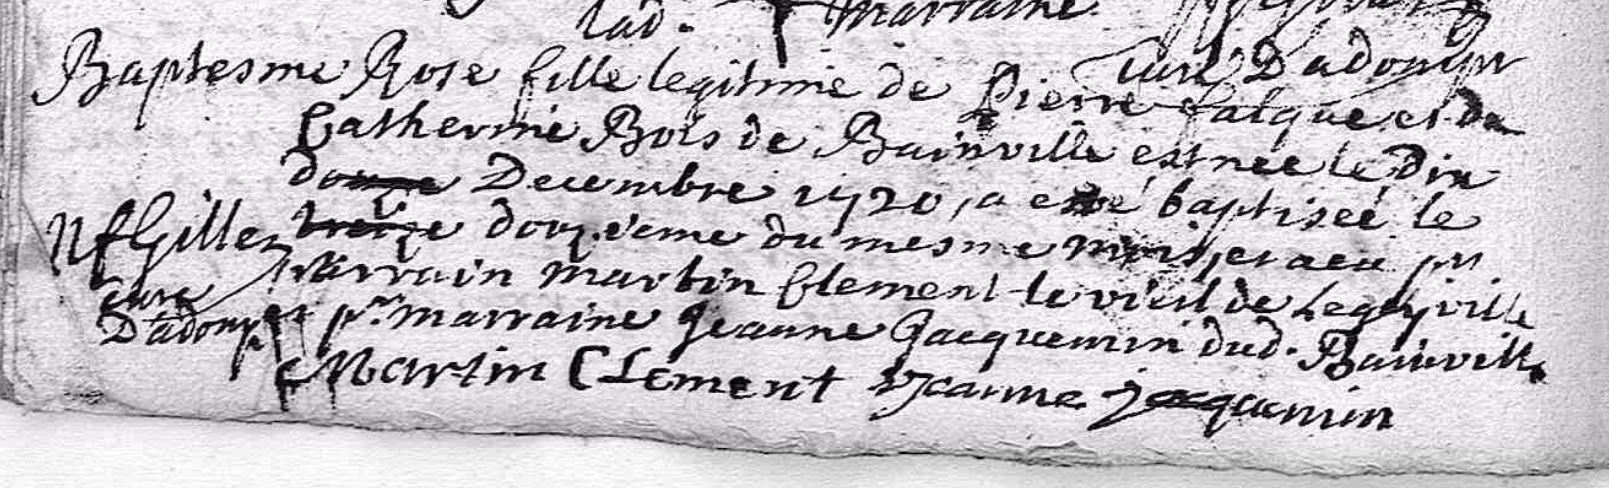 lad. marraine
curé Dadompr
Baptesme Rose fille legitime de Pierre Calque et de
Catherine Bois de Bainville est née le Dix
douze Decembre 1720, a esté baptiseé le
treize douzieme du mesme mois, et a eu pr
parrain Martin Clement le vieil de Legeyville
et pr. marraine Jeanne Jacquemin dud. Bainville
N f Gillez
curé
Dadompr
Martin CLement Jeanne jacquemin